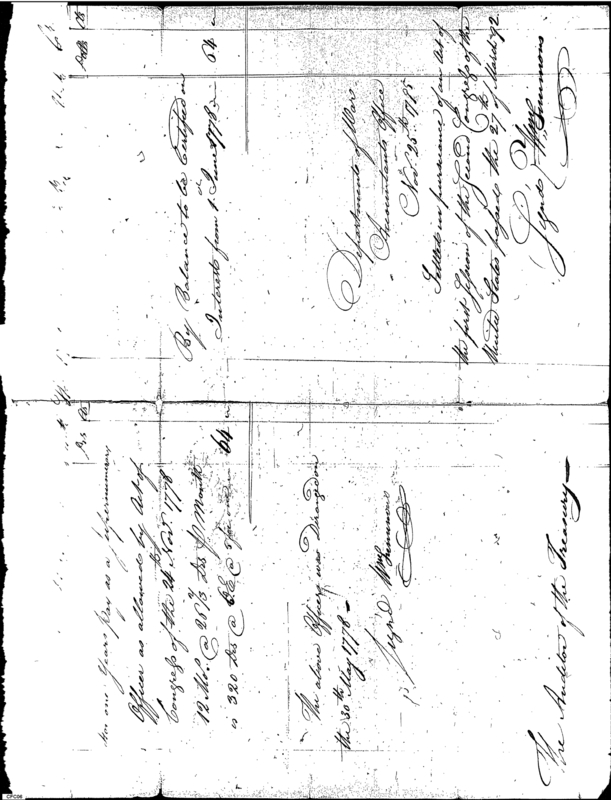 one Years Pay as a Supernumerary
Officer as allowed by Act of
Congress of the 24 Novr. 1778
12 Mos. @ 26 2/3 Drs ⅌ Month
is 320 Drs @ 64
The above Officer was deranged on
the 30th May 1778 –
Signd Wm Simmons
The Auditor of the Treasury –
Dolls
By Balance to be Certified on
Interest from 1 June 1778 64
Department of War
Accountants Office
Novr. 25th
Settled in pursuance of an Act of
the first Session of the Second Congress of the
United States passed the 27th of March 92
Signd Wm Simmons
CFC06